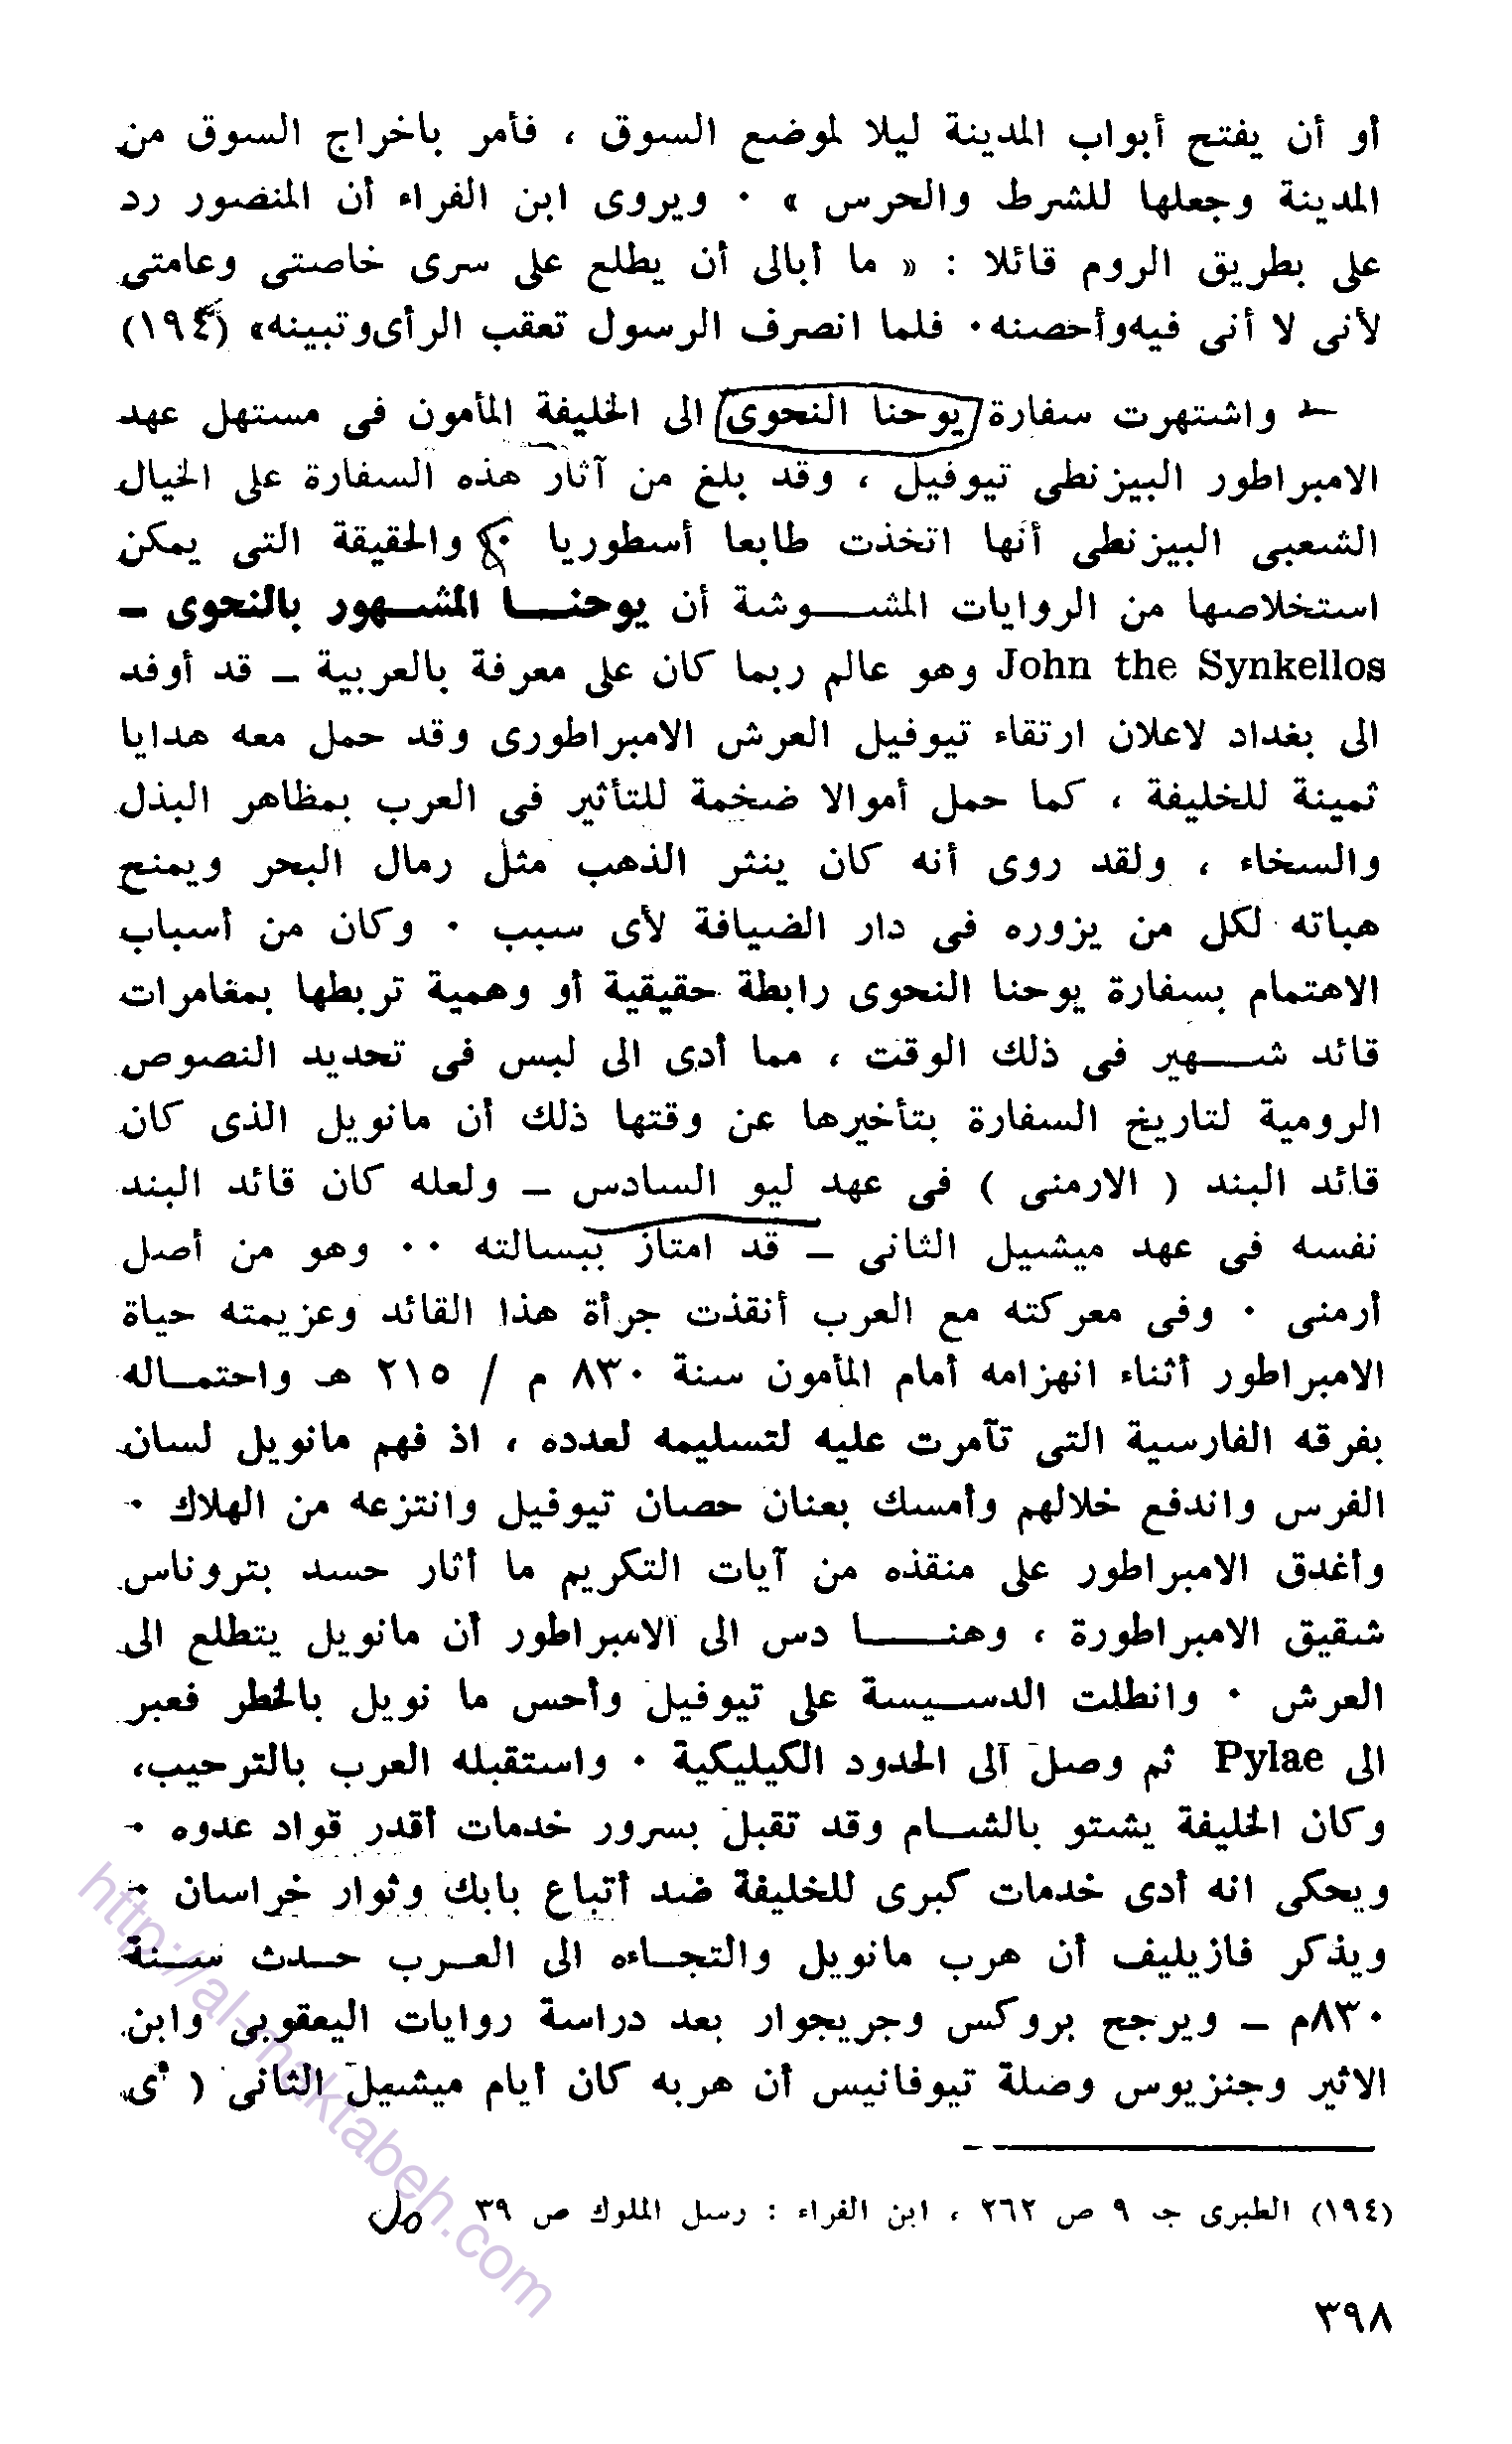 أو أن يفتح أبواب المدينة ليلا لموضع السوق ، فأمر باخراج السوق من
المدينة وجعلها للشرط والحرس » ٠ ويروى ابن الفراء أن المنصور رد
على بطريق الروم قائلا : « ما أبالى أن يطلع على سرى خاصتى وعامتى
لأنى لا أنى فيه وأحصنه ٠ فلما انصرف الرسول تعقب الرأى وتبينه» (١٩٤)
واشتهرت سفارة يوحنا النحوى الى الخليفة المأمون فى مستهل عهد
الامبراطور البيزنطى تيوفيل ، وقد بلغ من آثار هذه السفارة على الخيال
الشعبى البيزنطى أنها اتخذت طابعا أسطوريا ٠ والحقيقة التى يمكن
استخلاصها من الروايات المشوشة أن يوحنا المشهور بالنحوى –
John the Synkellos وهو عالم ربما كان على معرفة بالعربية – قد أوفد
الى بغداد لاعلان ارتقاء تيوفيل العرش الامبراطورى وقد حمل معه هدايا
ثمينة للخليفة ، كما حمل أموالا ضخمة للتأثير فى العرب بمظاهر البذل
والسخاء ، ولقد روى أنه كان ينثر الذهب مثل رمال البحر ويمنح
هباته لكل من يزوره فى دار الضيافة لأى سبب ٠ وكان من أسباب
الاهتمام بسفارة يوحنا النحوى رابطة حقيقية أو وهمية تربطها بمغامرات
قائد شهير فى ذلك الوقت ، مما أدى الى لبس فى تحديد النصوص
الرومية لتاريخ السفارة بتأخيرها عن وقتها ذلك أن مانويل الذى كان
قائد البند ( الارمنى ) فى عهد ليو السادس – ولعله كان قائد البند
نفسه فى عهد ميشيل الثانى – قد امتاز ببسالته ٠٠ وهو من أصل
أرمنى ٠ وفى معركته مع العرب أنقذت جرأة هذا القائد وعزيمته حياة
الامبراطور أثناء انهزامه أمام المأمون سنة ٨٣٠ م / ٢١٥ هـ واحتماله
بفرقه الفارسية التى تآمرت عليه لتسليمه لعدده ، اذ فهم مانويل لسان
الفرس واندفع خلالهم وأمسك بعنان حصان تيوفيل وانتزعه من الهلاك ٠
وأغدق الامبراطور على منقذه من آيات التكريم ما أثار حسد بتروناس
شقيق الامبراطورة ، وهنا دس الى الامبراطور أن مانويل يتطلع الى
العرش ٠ وانطلت الدسيسة على تيوفيل وأحس ما نويل بالخطر فعبر
الى Pylae ثم وصل الى الحدود الكيليكية ٠ واستقبله العرب بالترحيب،
وكان الخليفة يشتو بالشام وقد تقبل بسرور خدمات أقدر قواد عدوه ٠
ويحكى انه أدى خدمات كبرى للخليفة ضد أتباع بابك وثوار خراسان ٠
ويذكر فازيليف أن هرب مانويل والتجاءه الى العرب حدث سنة
٨٣٠م – ويرجح بروكس وجريجوار بعد دراسة روايات اليعقوبى وابن
الاثير وجنزيوس وصلة تيوفانيس أن هربه كان أيام ميشيل الثانى ( أى
(١٩٤) الطبرى جـ ٩ ص ٢٦٢ ، ابن الفراء : رسل الملوك ص ٣٩
٣٩٨
http://al-maktabeh.com